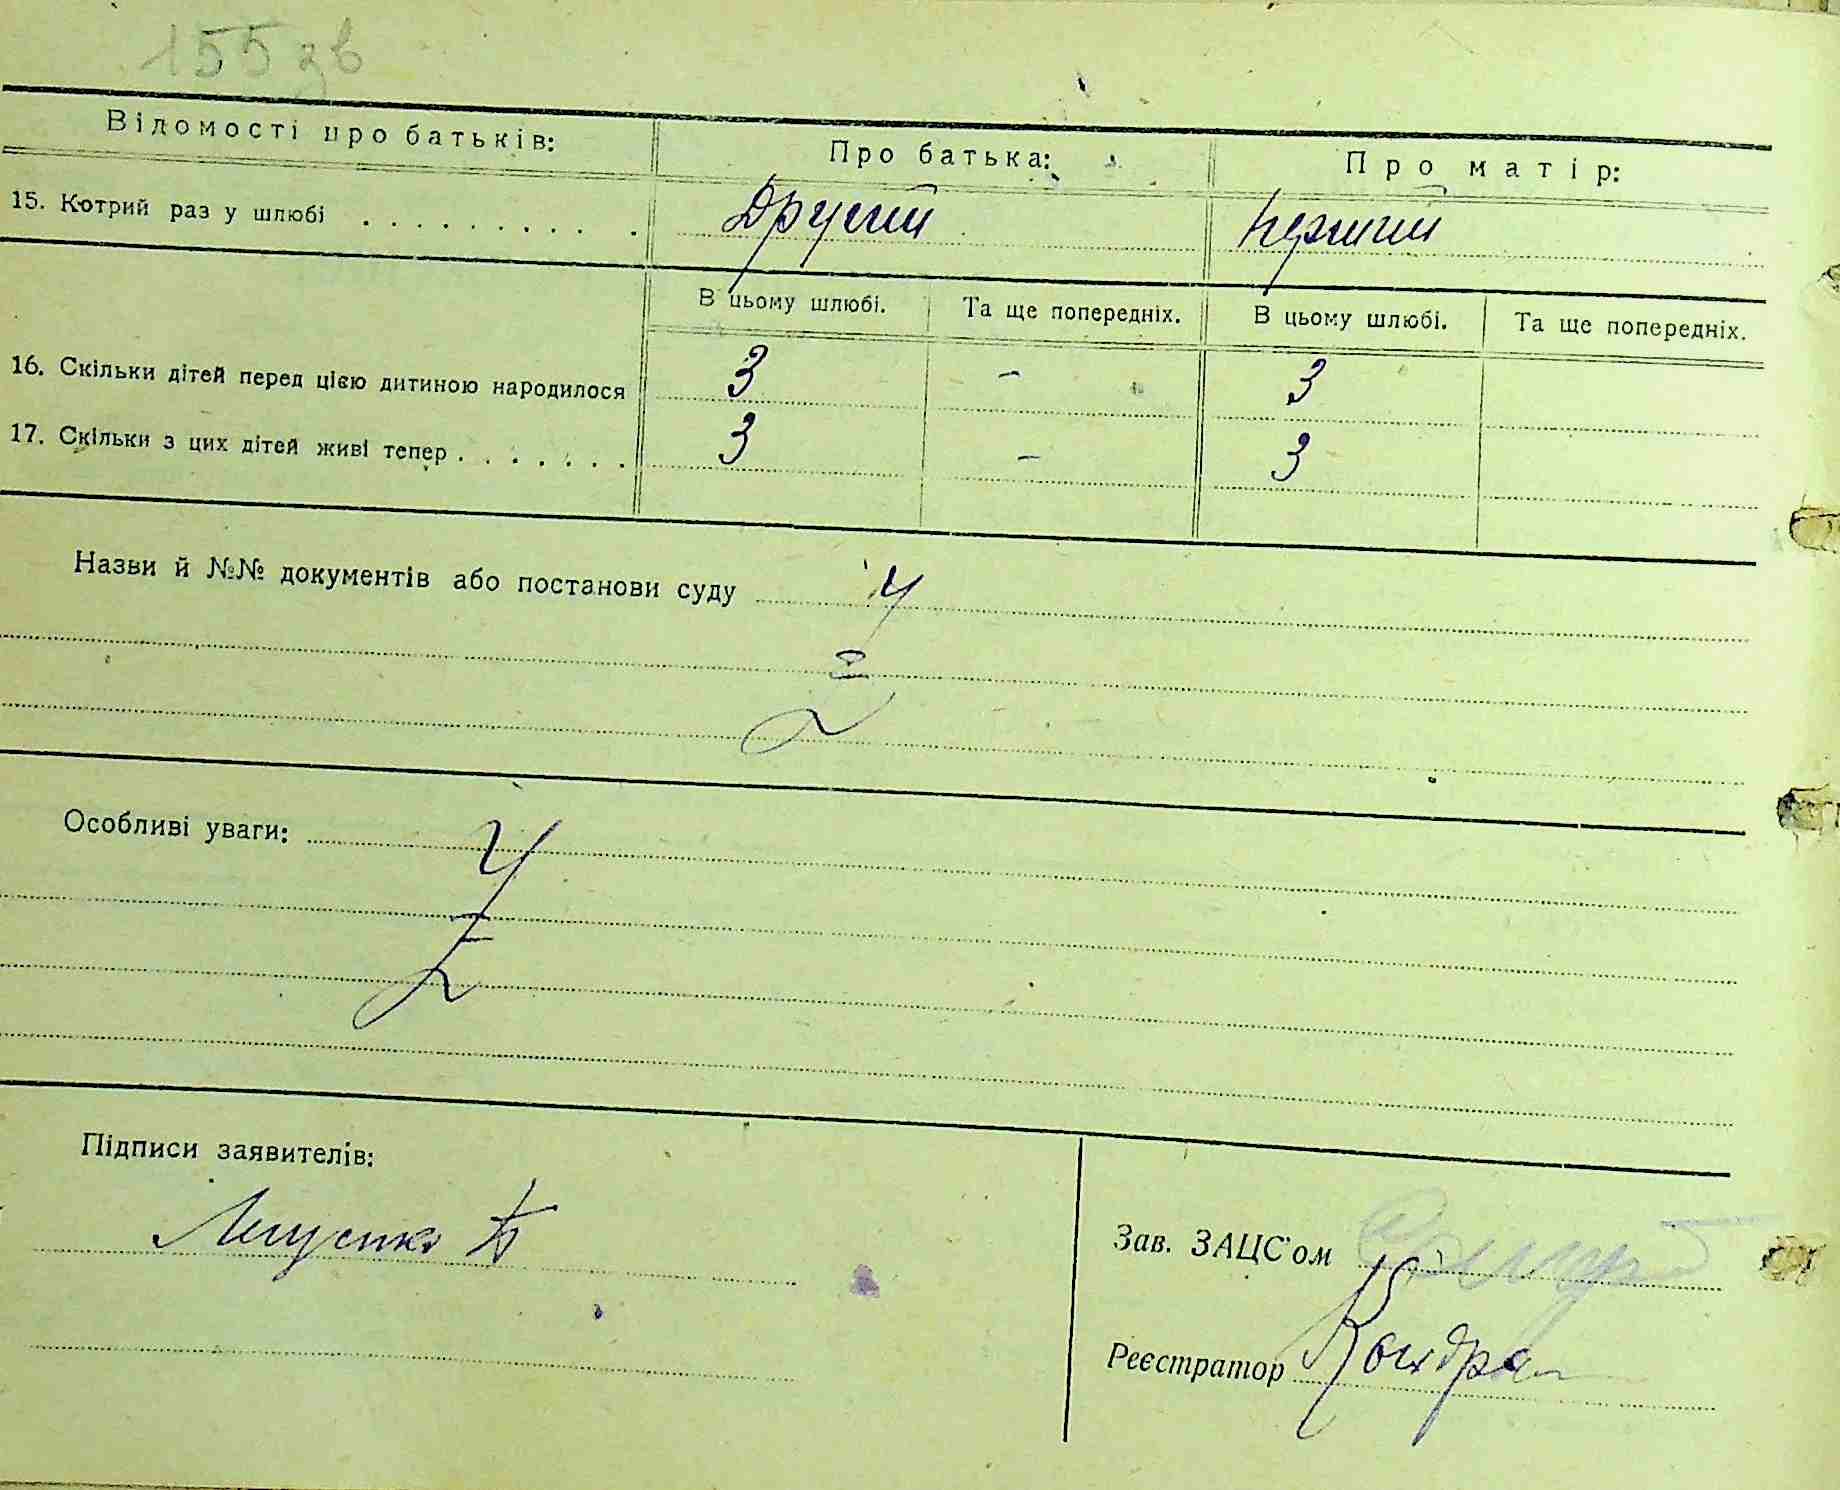 155 зв
Відомості про батьків: Про батька: Про матір:
15. Котрий раз у шлюбі . . . . . . . . . . Другий Перший
В цьому шлюбі. Та ще попередніх. В цьому шлюбі. Та ще попередніх.
16. Скільки дітей перед цією дитиною народилося 3 - 3
17. Скільки з цих дітей живі тепер . . . . . . . 3 - 3
Назви й №№ документів або постанови суду
Особливі уваги:
Підписи заявителів:
Зав. ЗАЦС'ом
Реєстратор Кондра